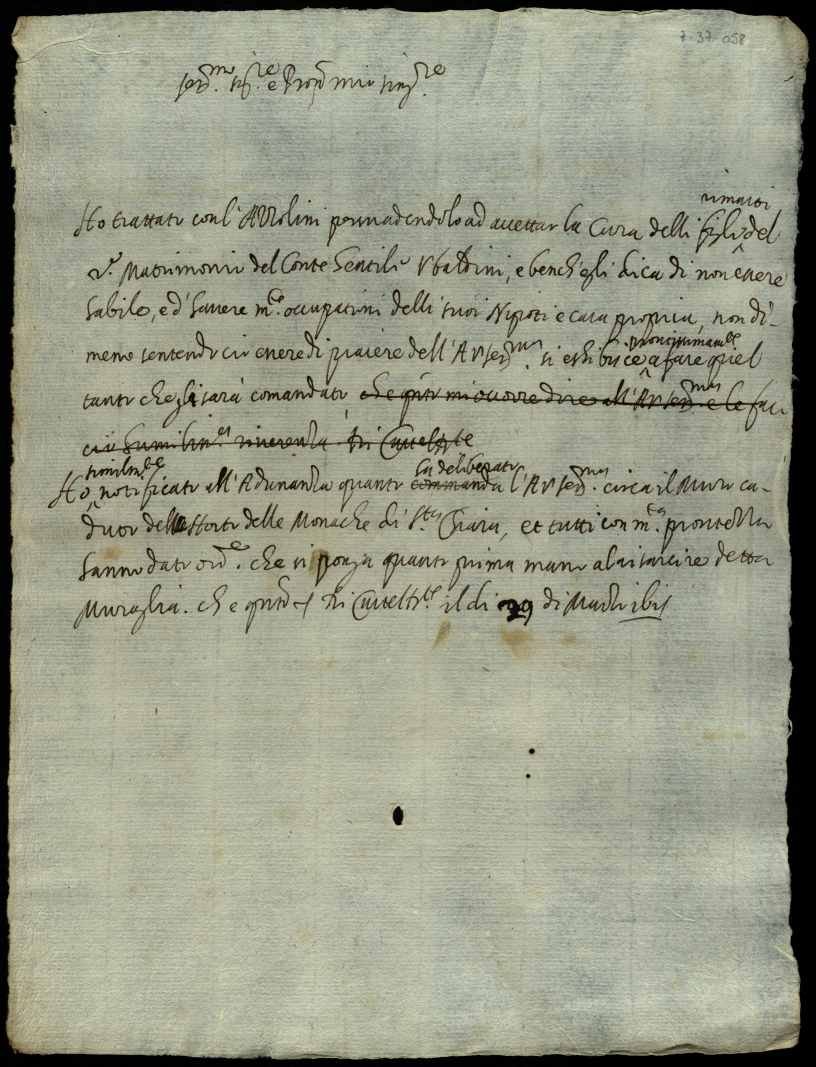 7-37-058
Ser.mo Sig.re e Pron mio Sing.re
rimasti
Ho trattato con l'Azzolini persuadendolo ad accettar la Cura delli figli del
2.o Matrimonio del Conte Gentile Ubaldini, e bench'egli dica di non essere
habile, e d'havere m.te occupationi delli suoi Nipoti e casa propria, non di-
meno sentendo ciò essere di piacere dell'A.V.Ser.ma si esibisce prontissimam.te a fare quel
tanto che gli sarà comandato che q.to mi occorre dire all'A.V.Ser.ma e le fac-
cio humiliss.a riverenza. Di Casteld.te
similm.te
la deliberato
Ho notificato all'Adunanza quanto comanda l'A.V.Ser.ma circa il Muro ca-
duto dell Horto delle Monache di S.ta Chiara, et tutti con m.a prontezza
hanno dato ord.e che si ponga quanto prima mano a la risarcire detta
Muraglia. che è q.to Di Casteld.te il di 29 di Marzo